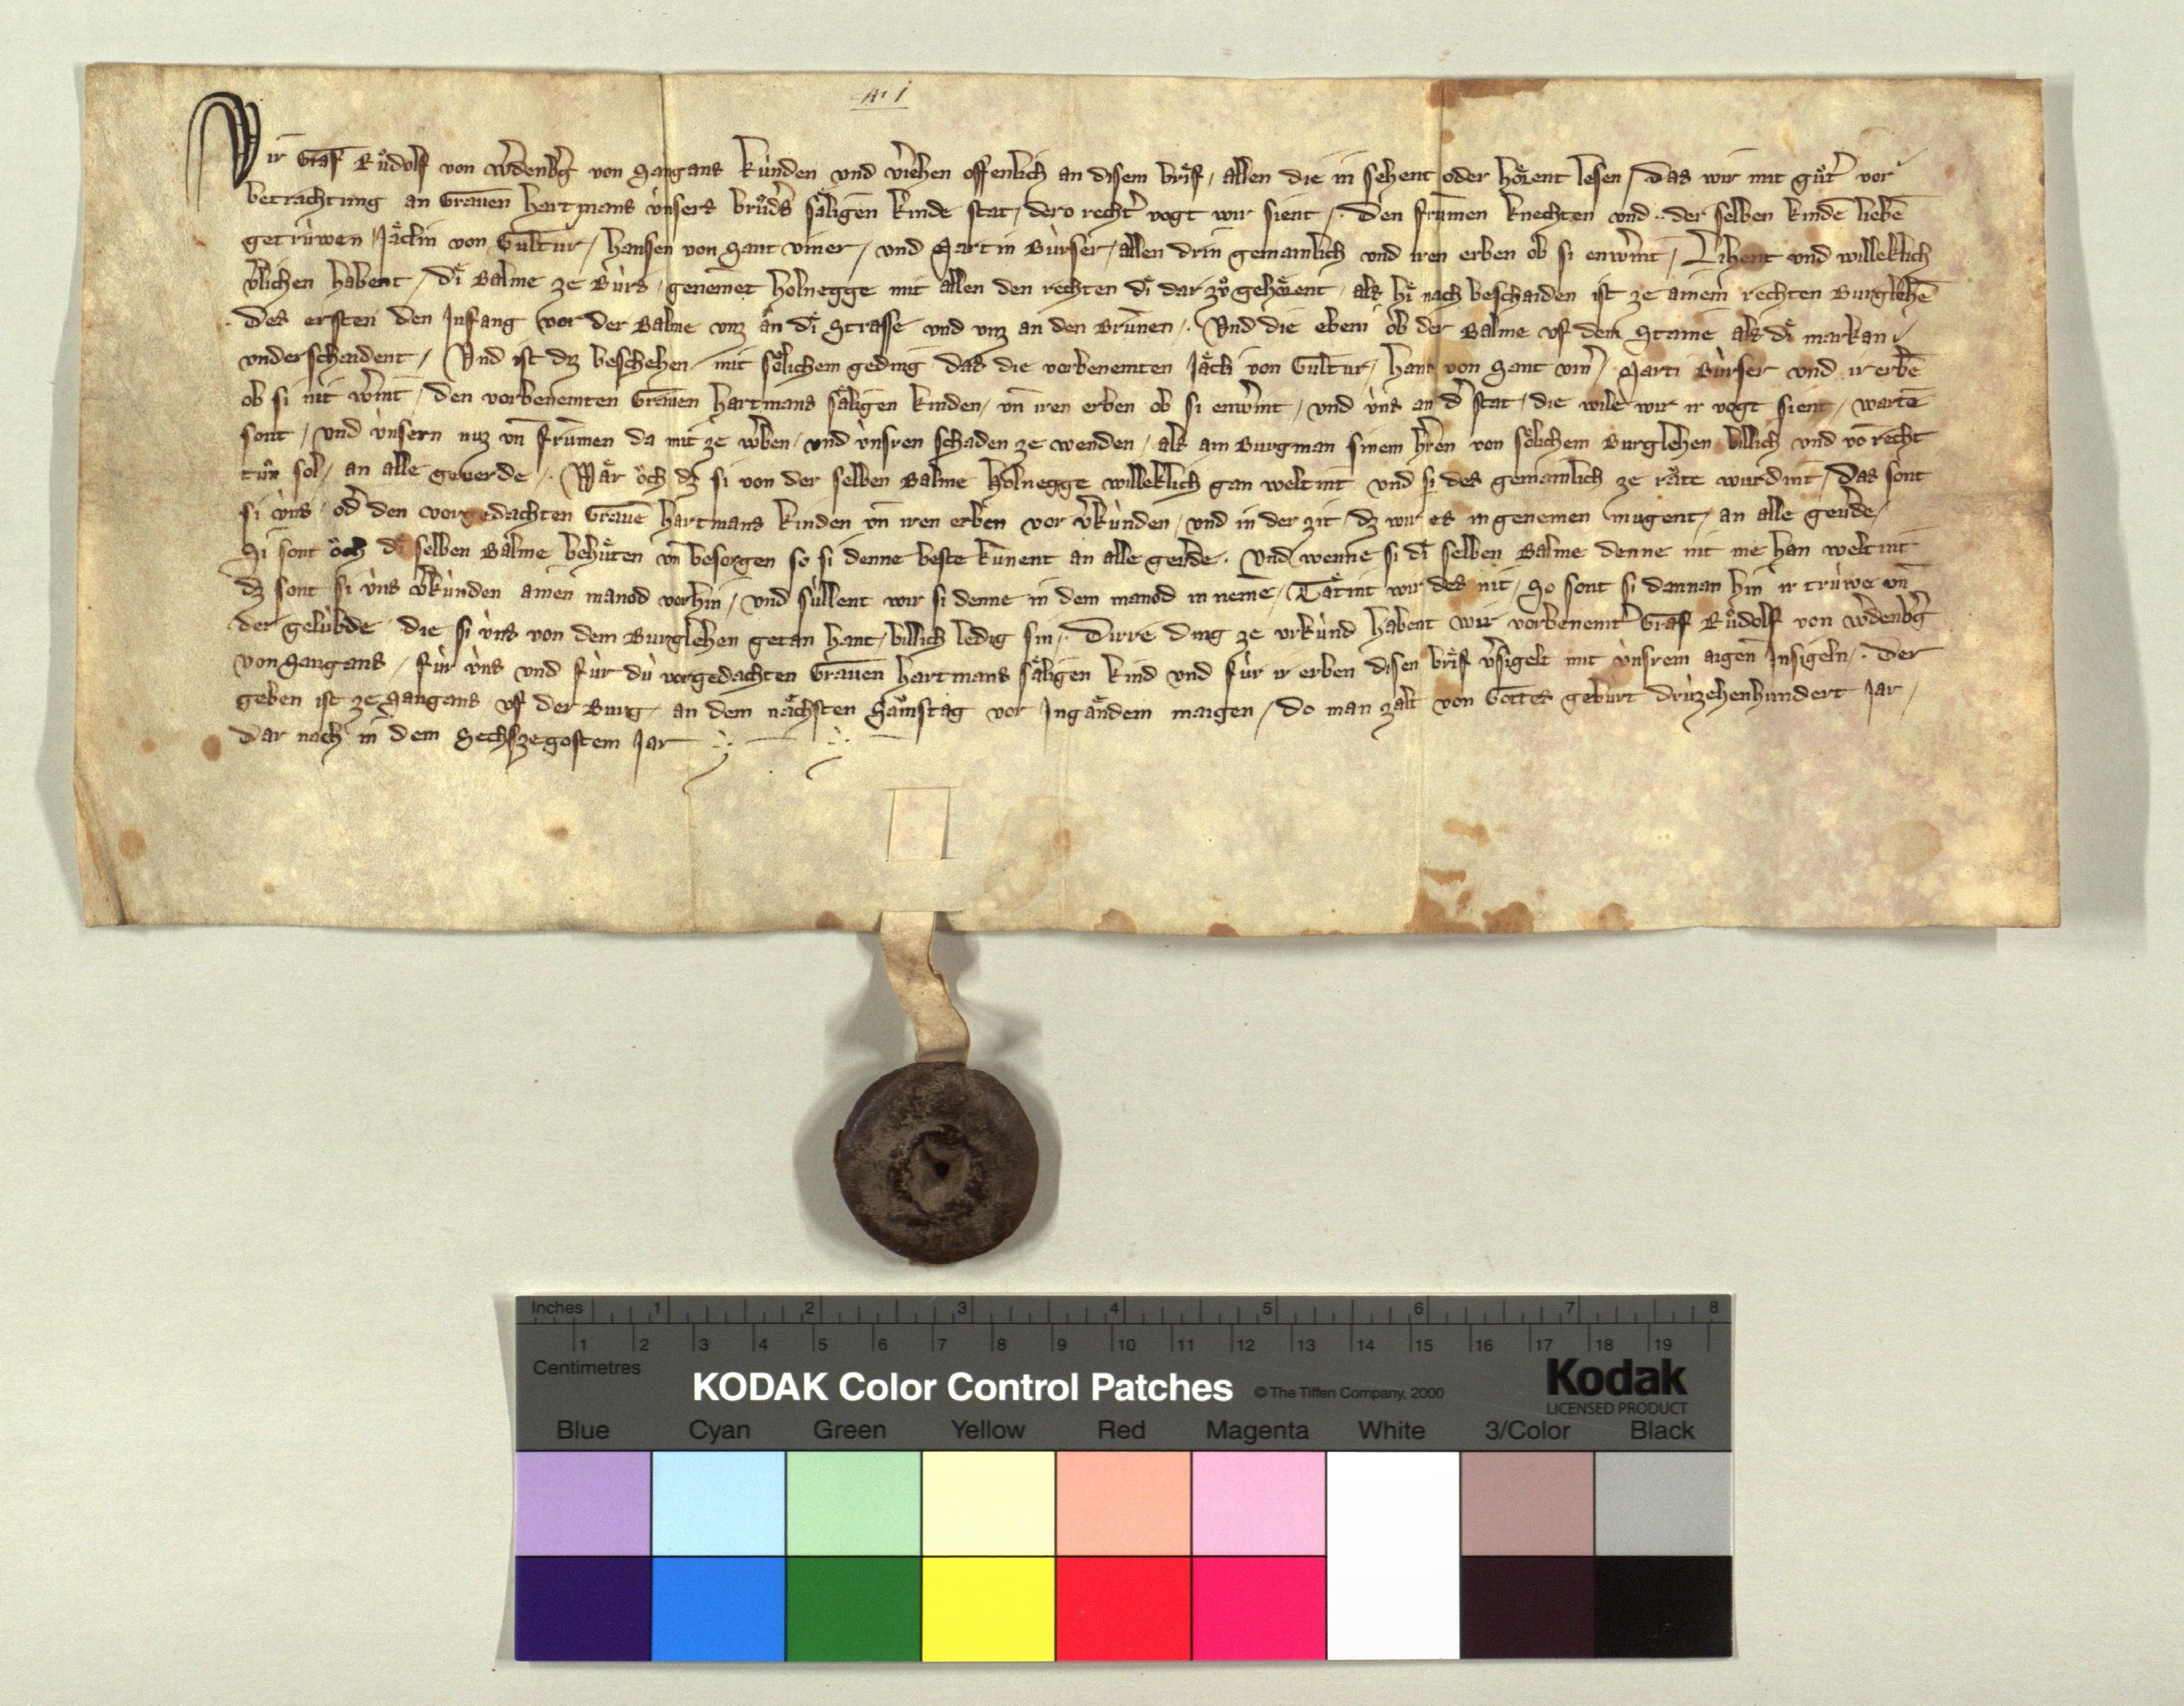 A. 1
Wir Graf Růdolf von Wͬdenbͬg von Sangans kùnden und vͬiehen offenlich an disem brief, allen die in sehent oder hoͤrent lesen, das wir mit gůtͬ vor
betrachtung an Grauen Hartmans ùnsers brůdͬs saͤligen kinde stat, dero rechtͬ vogt wir sient. Den frumen knechten und der selben kindē liebē
getrùwen Jaͤclin von Gultur, Hansen von Sant Viner, und Martin Bùrser, allen drin gemainlich und iren erben ob si enwͬint, Lihent und willeklich
vͬlichen habent, dī Balme ze Bùrs, genemet Holnegge mit allen den rechten dī dar zů gehoͤrent, als hī nach beschaiden ist ze ainem rechten Burglehē
Des ersten den Infang vor der Balme unz an dī Strasse und unz an den Brunen. Und die ebeni ob der Balme uf dem Staine als dī markan
underschaident, Und ist dz beschehen mit soͤlichem geding das die vorbenemten Jaͤcli von Gultur, Hans von Sant Vinͬ, Marti Bùrser und ir erbē
ob si nit wͬint, den vorbenemten Grauen Hartmans saͤligen kinden, un̄ iren erben ob si enwͬint, und ùns an dͬ stat, die wile wir ir vogt sient, wartē
sont, und ùnsern nuz un̄ frumen da mit ze wͬben, und ùnsren schaden ze wenden, als ain Burgman sinem hͬren von soͤlichem Burglehen billich und vō recht
tůn sol, an alle geuerde. Waͤr oͮch dz si von der selben Balme Holnegge willeklich gan weltint und si des gemainlich ze raͤte wurdint, Das sont
si ùns, odͬ den vorgedachten Grauē Hartmans kinden un̄ iren erben vor vͬkùnden, und in der zit, dz wir es in genemen mugent, an alle geuͬde,
Si sont oͮch dī selben Balme behuͤten un̄ besorgen so si denne beste kunent an alle geuͬde. Und wenne si dī selben Balme denne nit me han weltint
dz sont si ùns vͬkùnden ainen manod vorhin, und sùllent wir si denne in dem manod in nemē, Taͤtint wir des nit, So sont si dannan hin ir trùwe un̄
der gelùbde die si ùns von dem Burglehen getan hant, billich ledig sin. Dirre ding ze urkùnd habent wir vorbenemtͬ Graf Růdolf von Wͬdenbͬg
von Sangans, fùr ùns und fùr dù vorgedachten Grauen Hartmans saͤligen kind und fùr ir erben disen brief vͬsigelt mit ùnsrem aigen Insigeln. Der
geben ist ze Sangans uf der Burg, an dem naͤchsten Samstag vor Ingaͤndem maigen, do man zalt von Gottes geburt drùzehenhundert Jar,
dar nach in dem Sechszegostem Jar
Inches 1 2 3 4 5 6 7 8
1 2 3 4 5 6 7 8 9 10 11 12 13 14 15 16 17 18 19
Centimetres
KODAK Color Control Patches © The Tiffen Company, 2000 Kodak
LICENSED PRODUCT
Blue Cyan Green Yellow Red Magenta White 3/Color Black